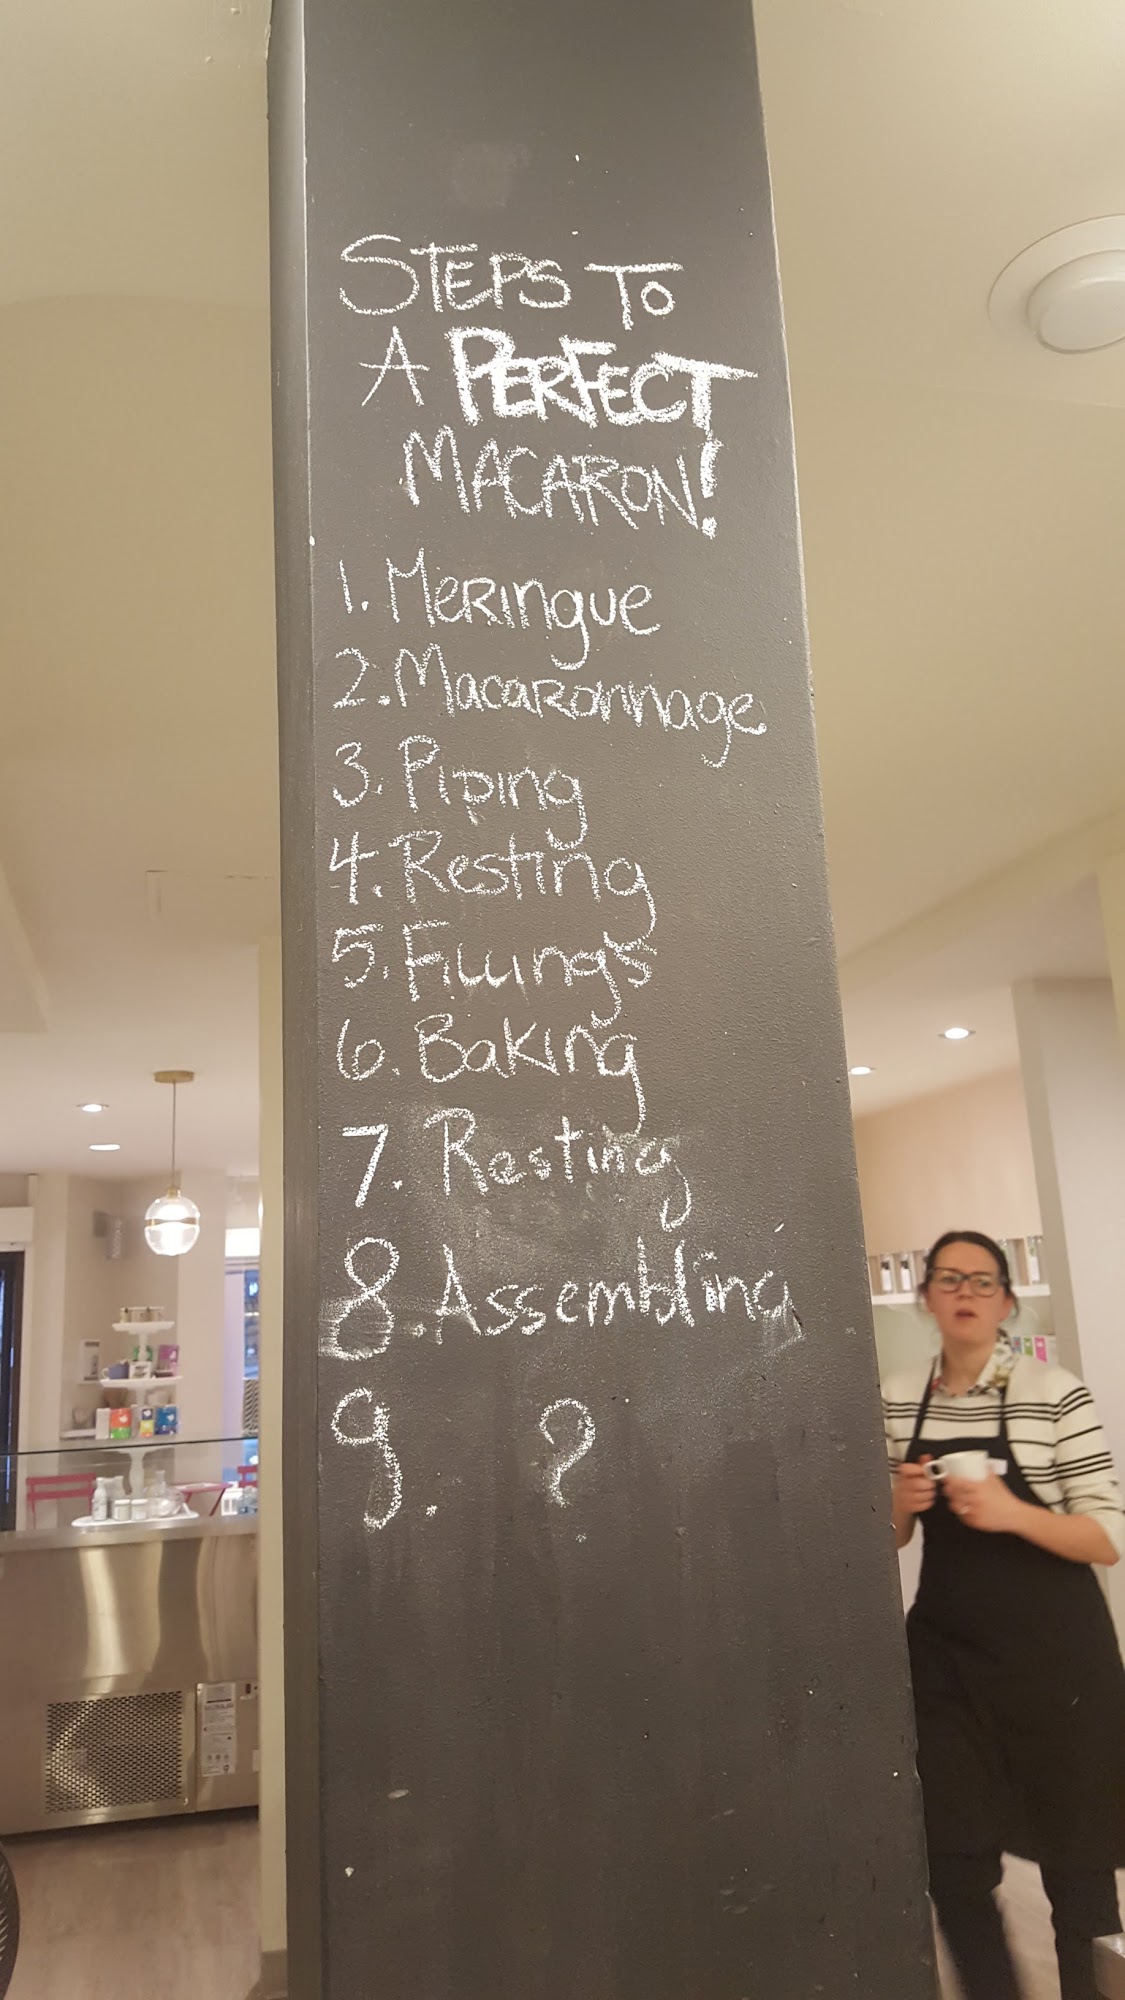 STEPS TO
A PERFECT
MACARON!
1. Meringue
2. Macaronnage
3. Piping
4. Resting
5. Fillings
6. Baking
7. Resting
8. Assembling
9. ?